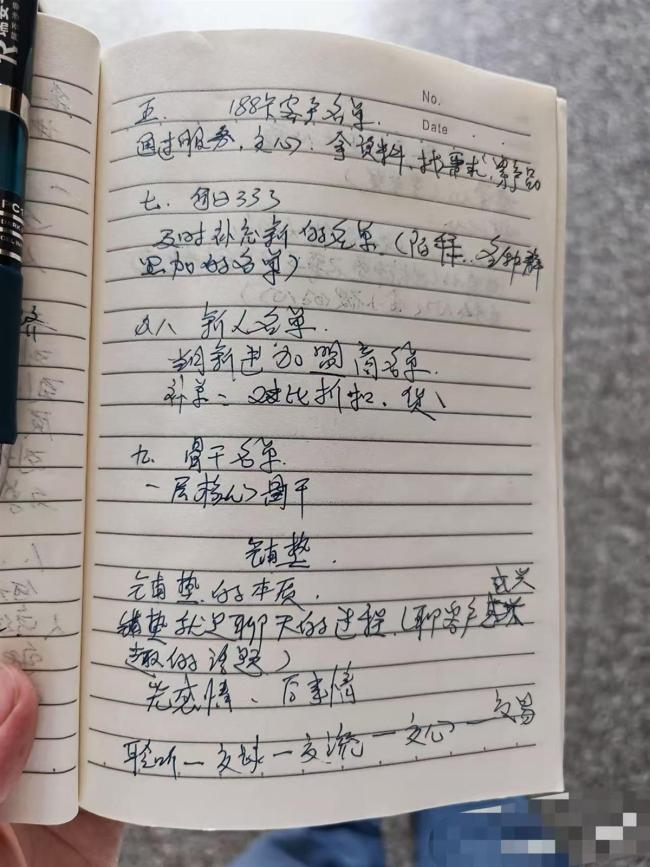 No.
Date
五. 188卡客户名单.
通过服务,交心,拿资料,找需求,
七. 每日333
及时补充新的名单.(陌拜.各种群
里加的名单)
八 新人名单.
当月新进加盟商名单.
计单:对比折扣、货
九. 骨干名单.
一层核心骨干
铺垫.
铺垫的本质.
铺垫就是聊天的过程.(聊客户感兴
趣的话题)
先感情、后事情
聆听一交谈一交流一交心一交易